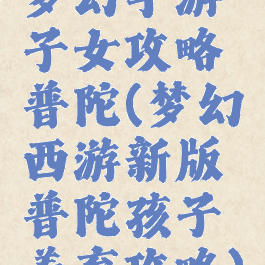 梦幻手游
子女攻略
普陀(梦幻
西游新版
普陀孩子
养育攻略)